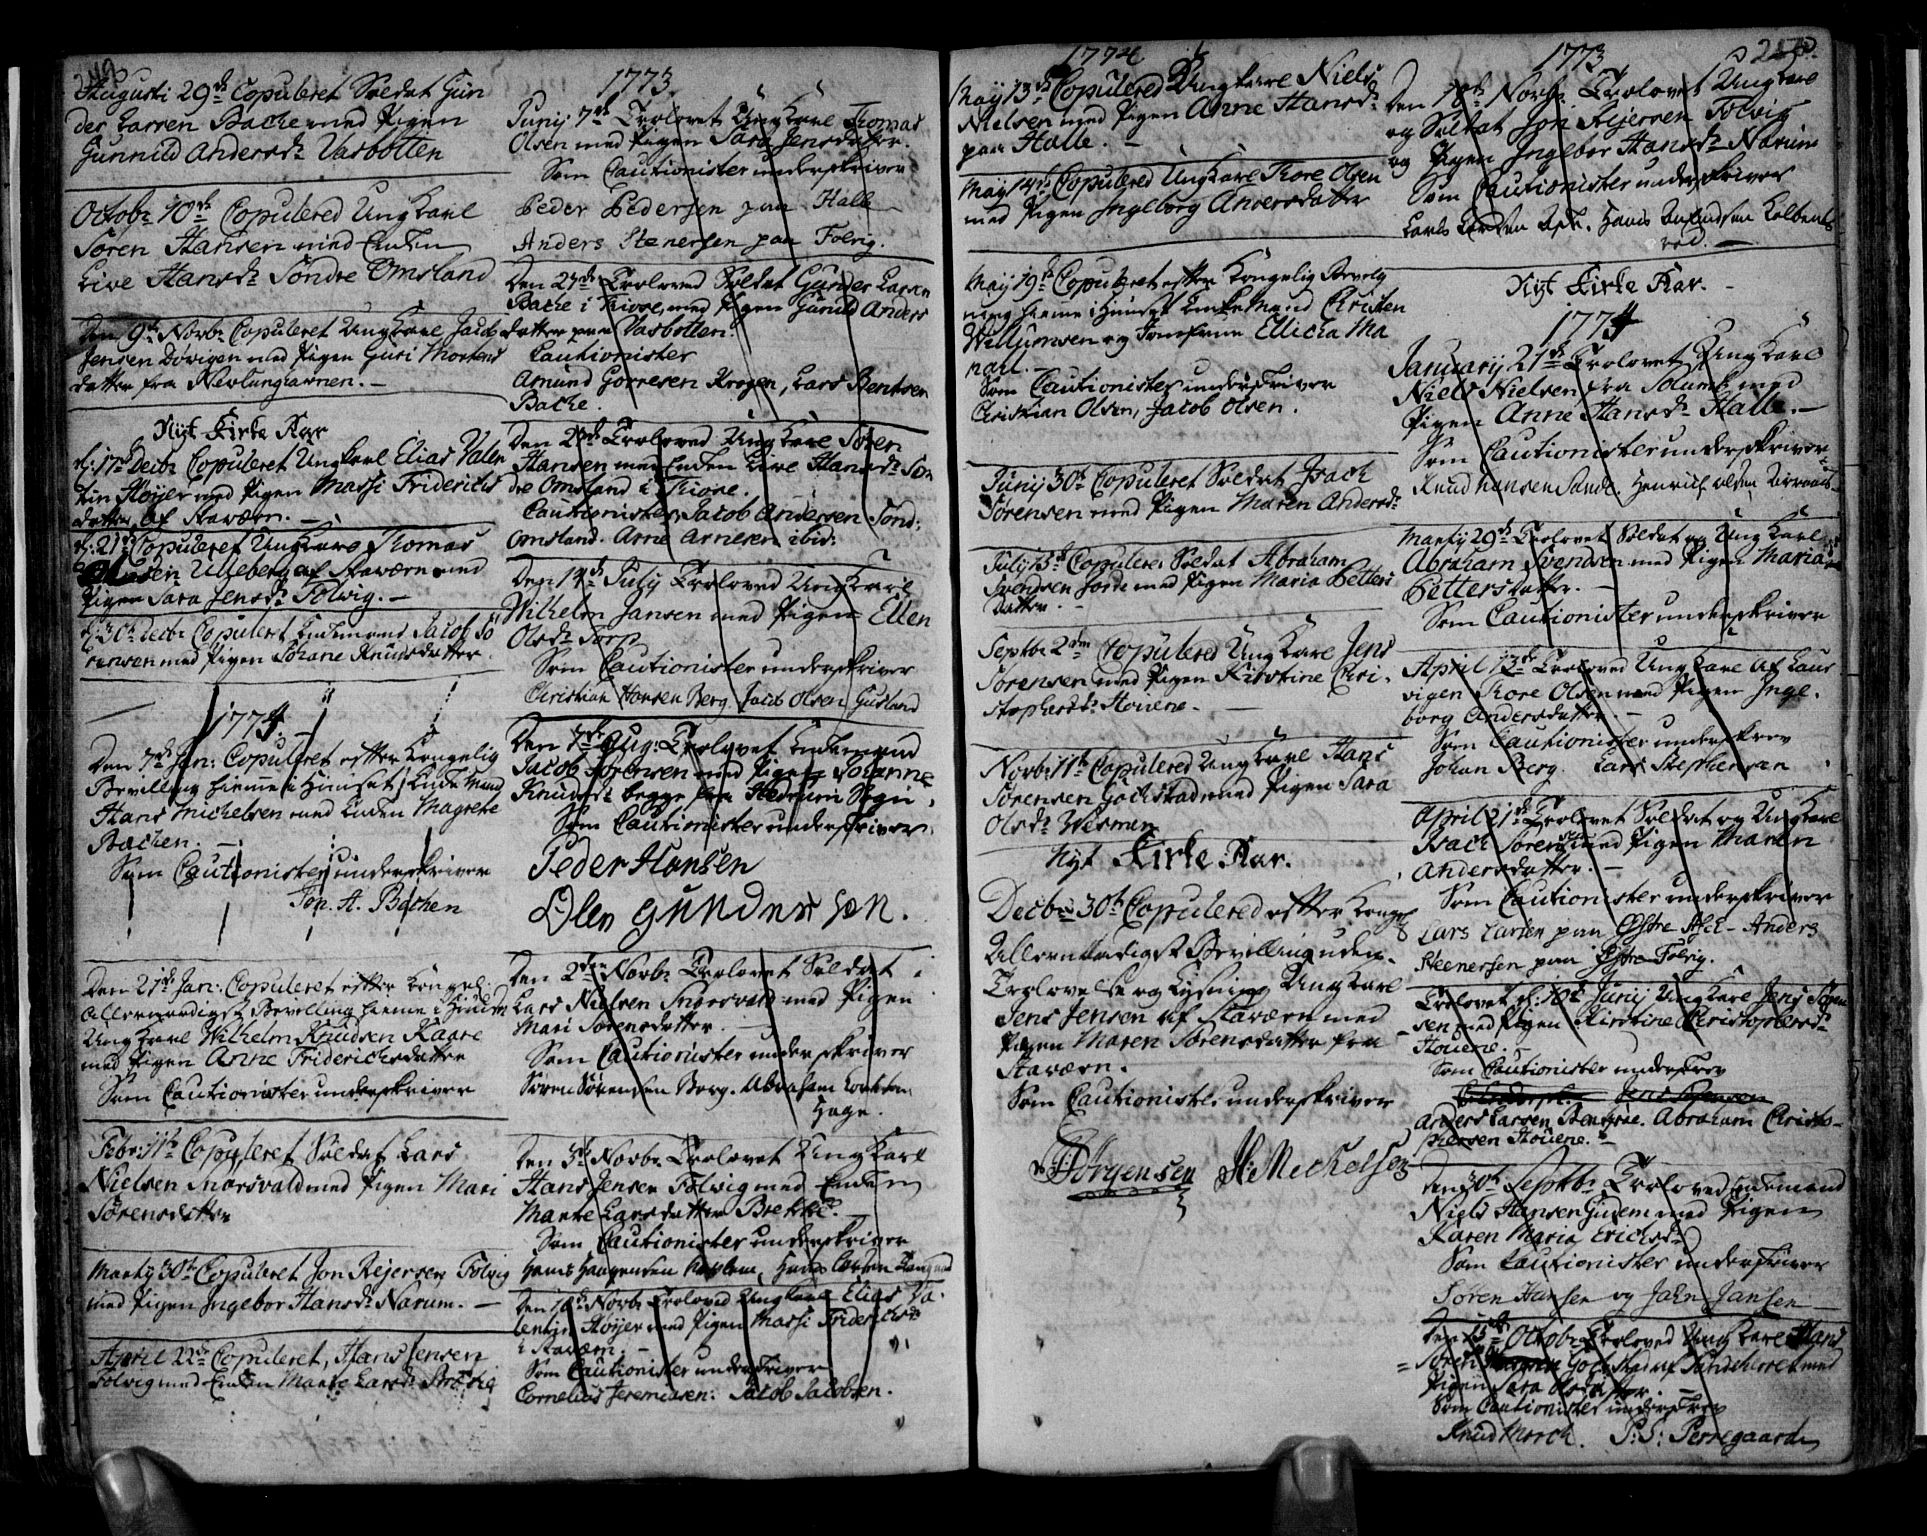 249
Augusti 29de Copuleret Soldat Gun
der Larsen Bache med Pigen
Gunnild Andersdr Vasbotten
Octobr 10de Copulered Ungkarl
Søren Hansen med Enken
Live Hansdr Søndre Omsland
Den 9de Novbr Copuleret Ungkarl Jacob
Jensen Dövigen med Pigen Guri Mortens
datter fra Nevlunghavnen.
Nyt Kirke Aar
d: 17de Decbr Copuleret Ungkarl Elias Valen
tin Høyer med Pigen Massi Friderichs
datter af Staværn.
d: 21de Copuleret Ungkarl Thomas
Olsen Ulleberg af Staværn med
Pigen Sara Jensdr Folvig.
d: 30te Decbr Copuleret Enkemand Jacob Sö
rensen med Pigen Johane Knudsdatter.
1774
Den 7de Jan: Copuleret efter Kongelig
Bevilling hiemme i Huuset Enke Mand
Hans Michelsen med Enken Magrethe
Bachen.
Som Cautionister underskriver
Jon. A. Bachen
Den 21de Jan: Copuleret efter Kongel:
allernaadigst Bevilling hiemme i Huuset
Ungkarl Wilhelm Knudsen Kaare
med Pigen Anne Friderichsdatter
Som Cautionister underskriver
Febr: 11te Copuleret Soldat Lars
Nielsen Snarsvald med Pigen Mari
Sørensdatter
Martij 30te Copuleret Jon Rejersen Folvig
med Pigen Ingebor Hansdr Narum.
April 22de Copuleret, Hans Jensen
Folvig med Enken Marte Larsdr Brekke
1773
Junij 7de Trolovet Ungkarl Thomas
Olsen med Pigen Sara Jensdatter.
Som Cautionister underskriver
Peder Pedersen paa Halle
Anders Stenersen paa Folvig.
Den 27de Trolovet Soldat Gunder Larsen
Bache i Hiose, med Pigen Gunild Anders
datter paa Vasbotten.
Cautionister
Asmund Gorresen Krogen, Lars Bentsen
Bache.
Den Trolovet Ungkarl Søren
Hansen med Enken Live Hansdr Søn
dre Omsland i Hiose.
Cautionister Jacob Andersen Sønd:
Omsland. Arne Arnesen ibid:
Den 14de Julij Trolovet Ungkarl
Wilhelm Jansen med Pigen Ellen
Olsdr Torp
Som Cautionister underskriver
Christian Hansen Berg Jacob Olsen Gusland
Den 7de Aug: Trolovet Enkemand
Jacob Sørensen med Pigen Johanne
Knudsdr begge fra Hedrum Sogn.
Som Cautionister underskriver
Peder Hansen
Olev Gundersøn.
Den 2den Novbr Trolovet Soldat
Lars Nielsen Snarsvald med Pigen
Mari Sørensdatter.
Som Cautionister underskriver
Søren Sørensen Berg. Abraham
Hage.
Den 3de Novbr Trolovet Ungkarl
Hans Jensen Folvig med Enken
Marte Larsdatter Brekke.
Som Cautionister underskriver
Hans Haagensen Hans Larsen
Den 10de Novbr Trolovet Ungkarl Elias Va-
lentin Høyer med Pigen Massi Friderichsdr
i Staværn.
Som Cautionister underskriver
Cornelius Jeremiasen. Jacob Jacobsen.
1774
May 13de Copulered Ungkarl Niels
Nielsen med Pigen Anne Hansdr
paa Halle.
May 14de Copulered Ungkarl Tore Olsen
med Pigen Ingeborg Andersdatter
May 19de Copuleret efter Kongelig Bevilg
ning hieme i Huuset Enke Mand Christen
Wellumsen og Jomfrue Ellicia Ma
Som Cautionister underskriver
Christian Olsen, Jacob Olsen.
Junij 30te Copuleret Soldat Isach
Sörensen med Pigen Maren Andersdr
July 13de Copuleret Soldat Abraham
Svendsen med Pigen Maria Petters
datter.
Septbr 2den Copulered Ungkarl Jens
Sørensen med Pigen Kirstine Chri-
stophersdr Houene.
Novbr 11te Copulered Ungkarl Hans
Sørensen Gochstad med Pigen Sara
Olsdr Wesmen
Nyt Kirke Aar.
Decbr 30te Copulered efter Kongel
Allernaadigst Bevilling uden
Trolovelse og Lysning Ungkarl
Jens Jensen af Staværn med
Pigen Maren Sørensdatter fra
Staværn.
Som Cautionister underskriver
Jörgensen H. Michelsen
1773
250
Den 18de Novbr Trolovet Ungkarl
og Soldat Jon Rejersen Folvig
og Pigen Ingebor Hansdr Narum
Som Cautionister underskriver
Lars Hans
rød.
Nyt Kirke Aar.
1774
Januarij 21de Trolovet Ungkarl
Niels Nielsen fra Solum med
Pigen Anne Hansdr Halle.
Som Cautionister underskriver
Knud Hansen Sande. Henrich Olsen
Martij 29de Trolovet Soldat og Ungkarl
Abraham Svendsen med Pigen Maria
Pettersdatter.
Som Cautionister underskriver
April 13de Trolovet Ungkarl af Laur
vigen Tore Olsen med Pigen Inge-
borg Andersdatter.
Som Cautionister underskrev
Johan Berg. Lars Stephensen
April 21de Trolovet Soldat og Ungkarl
Isach Sørensen med Pigen Maren
Andersdatter.
Som Cautionister underskriver
Lars Larsen paa Østre Ask - Anders
Steenersen paa Østre Folvig.
Trolovet d: 10de Junij Ungkarl Jens Søren
sen med Pigen Kirstine Christophersdr
Houene.
Som Cautionister underskrev
Anders Larsen Abraham Christo-
phersen Houene.
Den 30te Septbr Trolovet Enkemand
Niels Hansen Gusem med Pigen
Karen Maria Erichsdr
Som Cautionister underskriver
Søren Hansen og John Jansen
Den 13de Octobr Trolovet Ungkarl Hans
Sørensen Gochstad af Sandeherret med
Pigen Sara Olsdatter.
Som Cautionister underskrev
Knud Morch. P: S: Perregaard